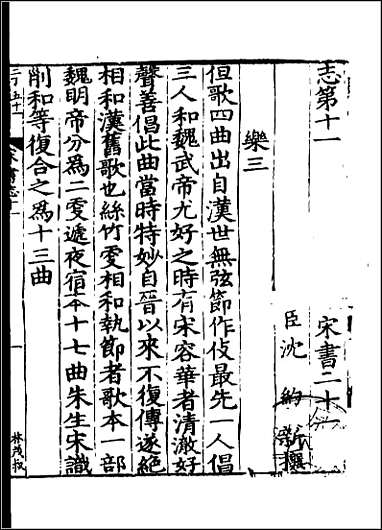 志第十一
宋書二十一
臣沈約新撰
樂三
但歌四曲出自漢世無弦節作伎最先一人倡
三人和魏武帝尤好之時有宋容華者清澈好
聲善倡此曲當時特妙自晉以來不復傳遂絶
相和漢舊歌也絲竹更相和執節者歌本一部
魏明帝分爲二更遞夜宿本十七曲朱生宋識
列和等復合之爲十三曲
林茂叔